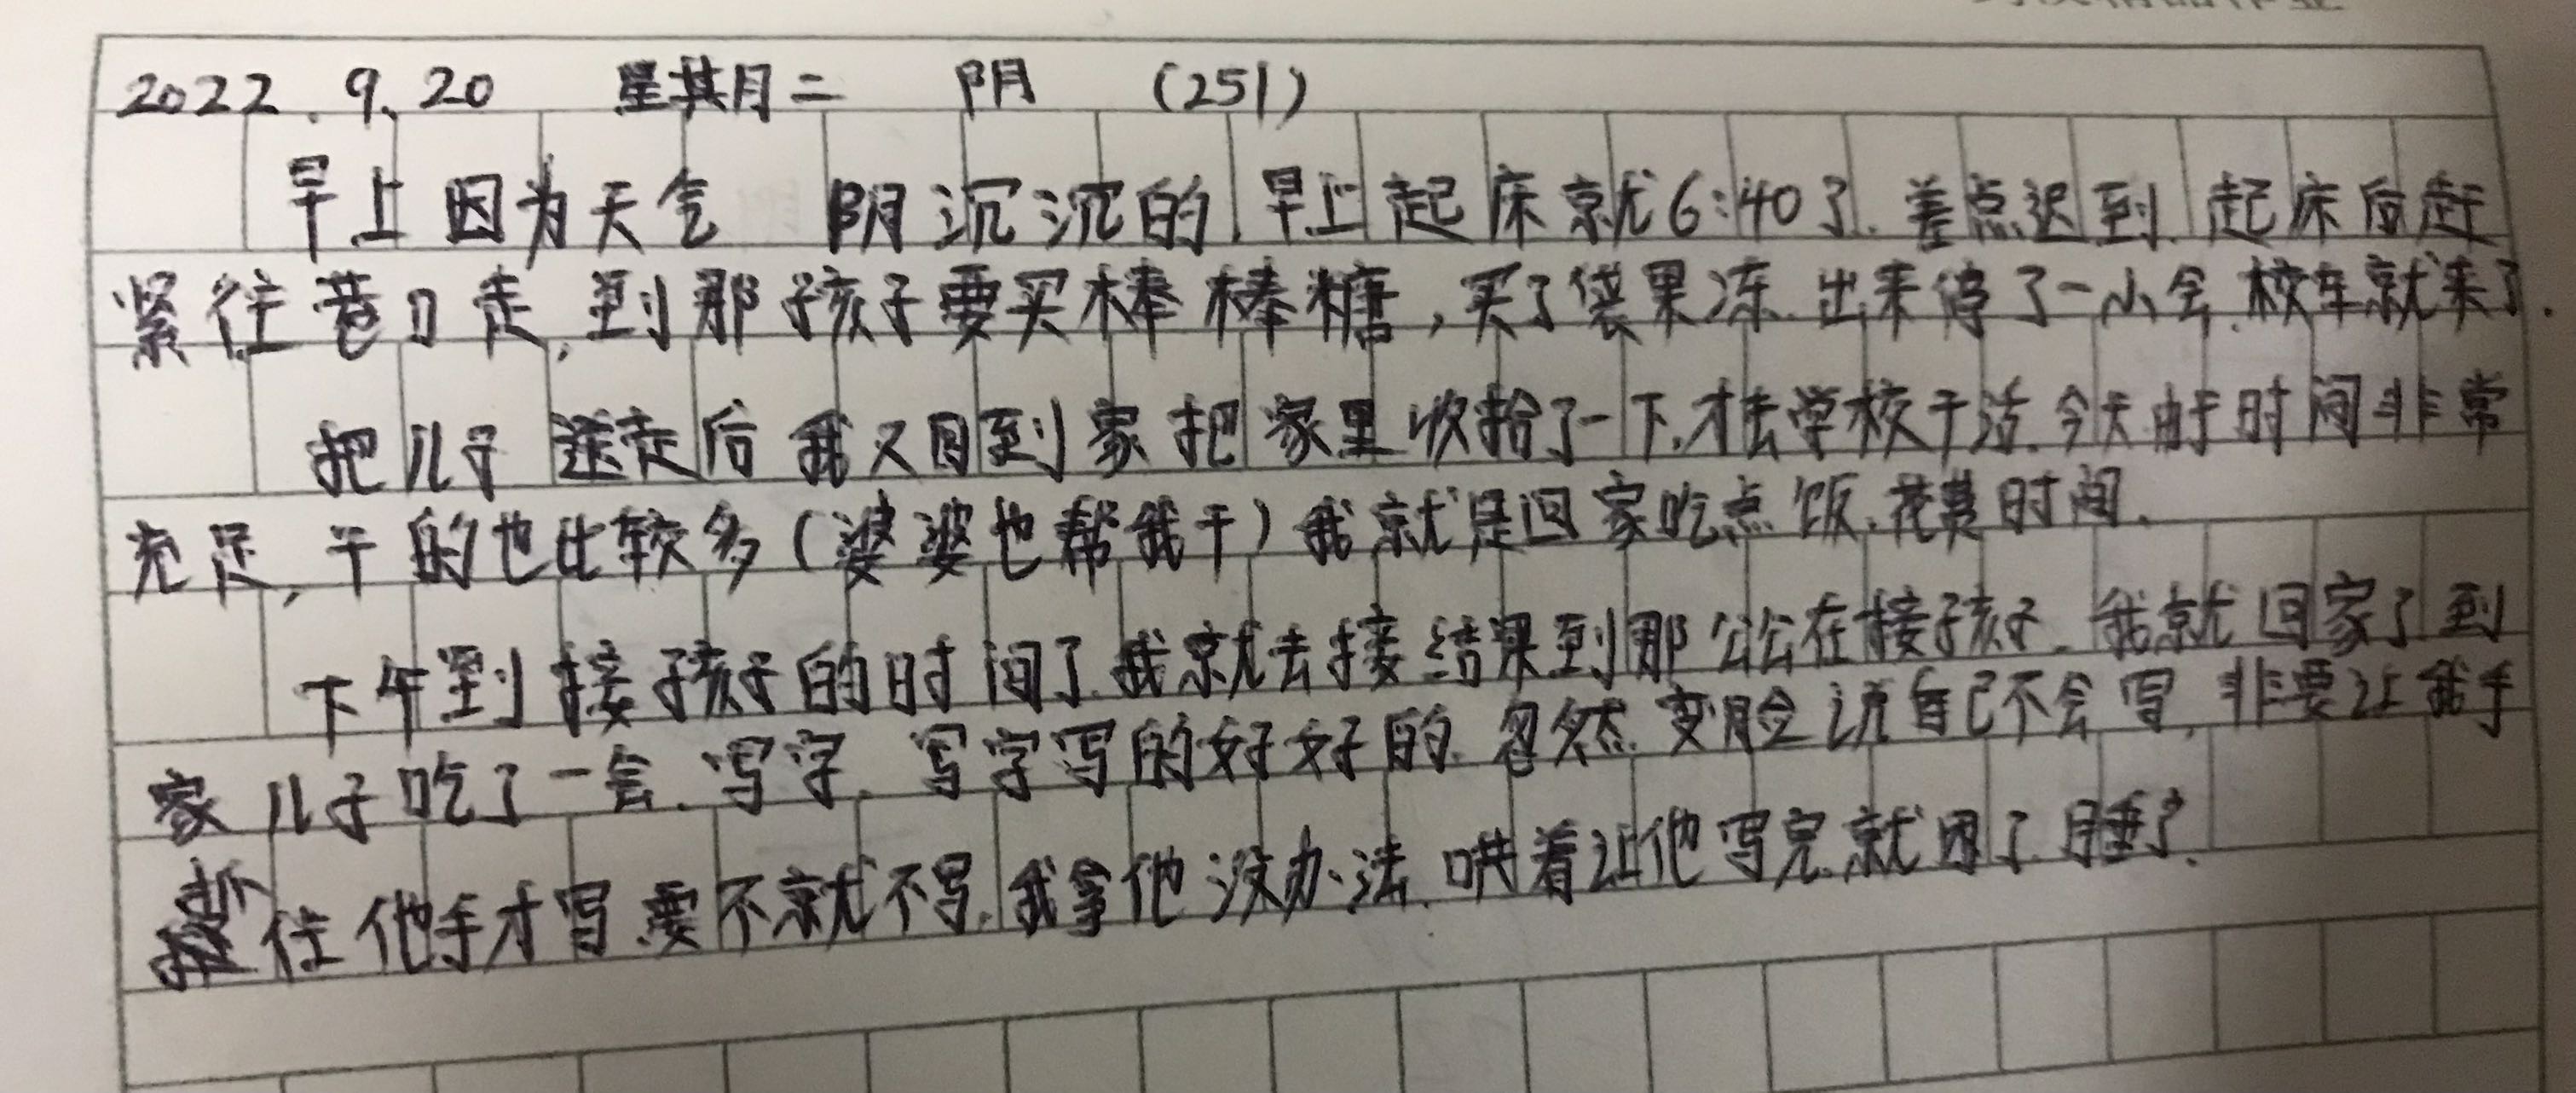 2022.9.20 星期二 阴 (251)
早上因为天气 阴沉沉的,早上起床就6:40了.差点迟到.起床后赶
紧往巷口走,到那孩子要买棒棒糖,买了袋果冻.出来停了一小会.校车就来了.
把儿子送走后我又回到家把家里收拾了一下,才去学校干活.今天由于时间非常
充足,干的也比较多(婆婆也帮我干)我就是回家吃点饭.花费时间.
下午到接孩子的时间了.我就去接结果到那公公在接孩子.我就回家了到
家儿子吃了一会.写字.写字写的好好的.忽然变脸说自己不会写,非要让我手
抓住他手才写.要不就不写.我拿他没办法.哄着让他写完.就困了.睡了.